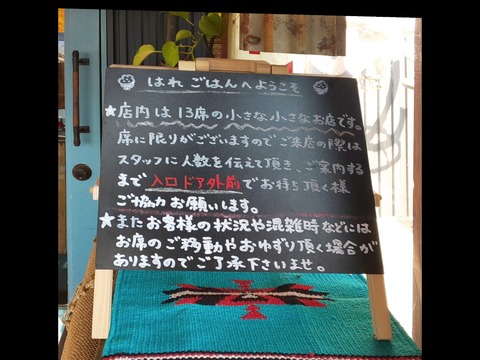 はれ ごはんへようこそ
★店内は13席の小さな小さなお店です。
席に限りがございますのでご来店の際は
スタッフに人数を伝えて頂き、ご案内する
まで入口ドア外前でお待ち頂く様
ご協力お願いします。
★またお客様の状況や混雑時などには
お席のご移動やおゆずり頂く場合が
ありますのでご了承下さいませ。